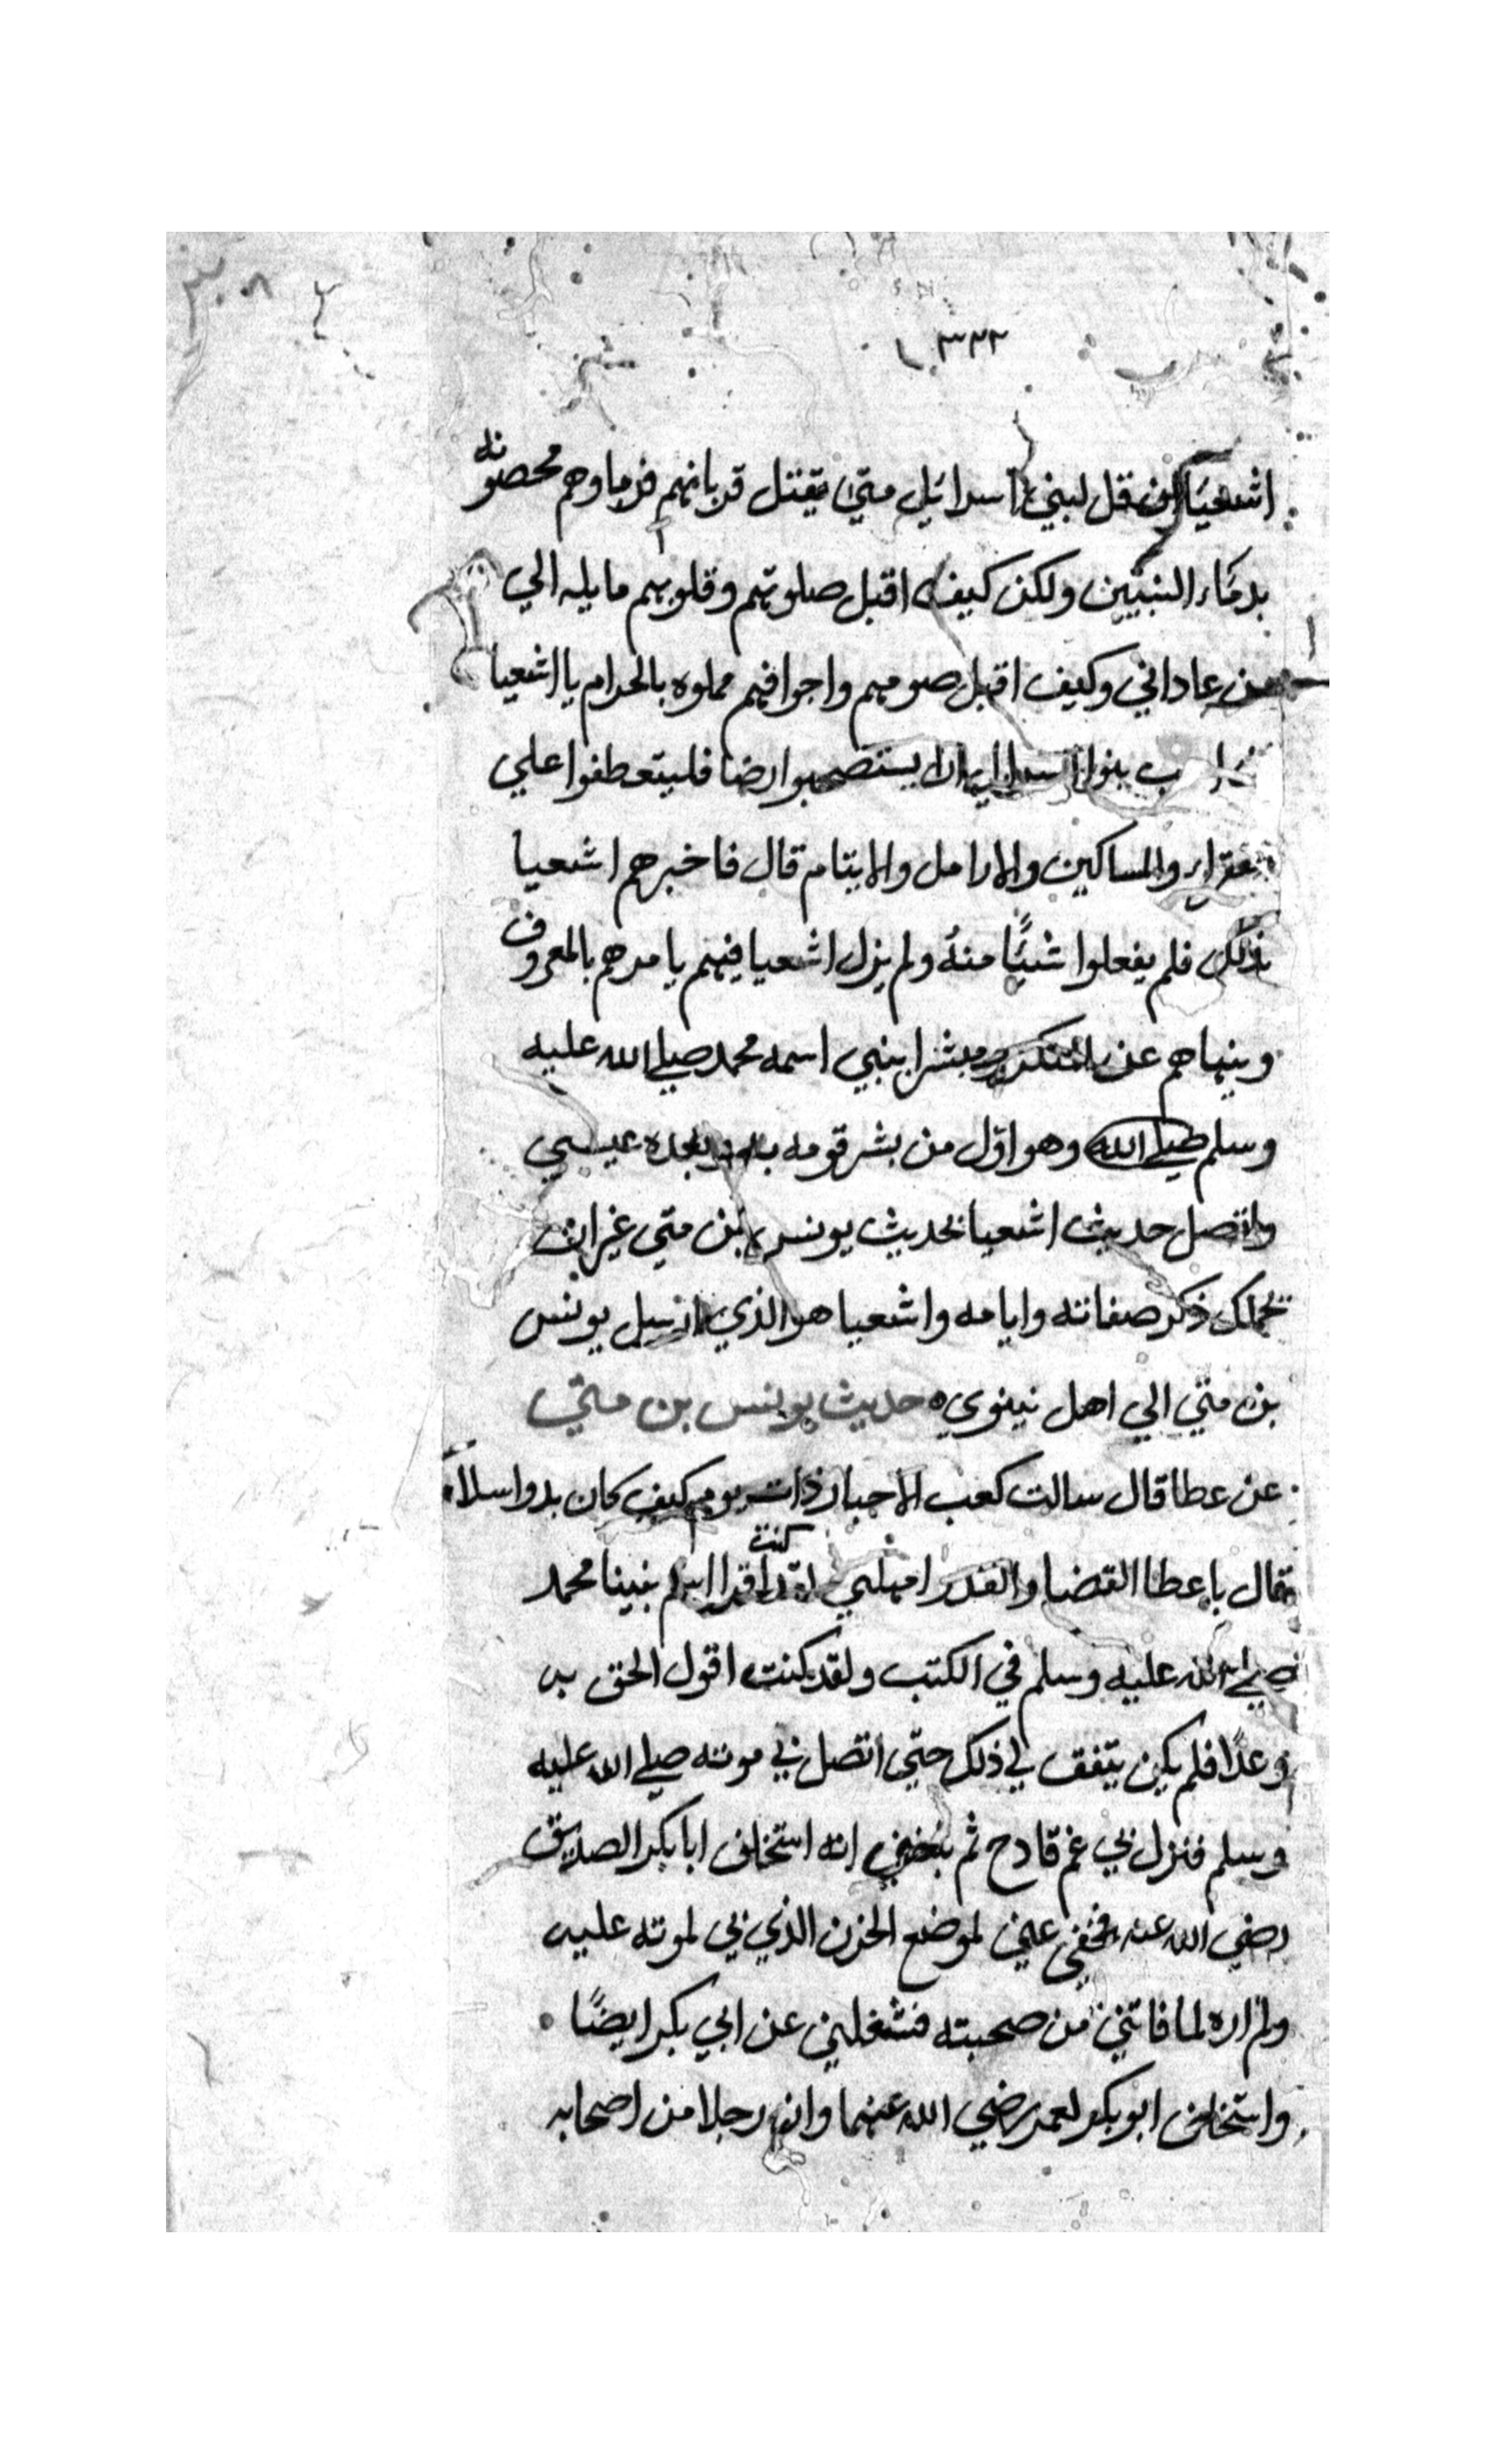 ٣٣٢
اشعيا ان قل لبني اسرائيل متي يقتل قربانهم فزماوهم محصونه
بدماء النبيين ولكن كيف اقبل صلوتهم وقلوبهم مايله الي
من عاداني وكيف اقبل صومهم واجوافهم مملوه بالحرام يا اشعيا
بنوا اسرايل ان يستصحبوا رضا فليتعطفوا علي
الفقراء والمساكين والارامل والايتام قال فاخبرهم اشعيا
بذلك فلم يفعلوا شيًا منه ولم يزل اشعيا فيهم يامرهم بالمعروف
وينهاهم عن المنكر ومبشرا بنبي اسمه محمد صلي الله عليه
وسلم صلي الله وهو اوّل من بشر قومه به وبعده عيسي
واتصل حديث اشعيا بحديث يونس بن متي غير ان
ذكر صفاته وايامه واشعيا هو الذي ارسل يونس
بن متي الي اهل نينوي حديث يونس بن متي
عن عطا قال سالت كعب الاحبار ذات يوم كيف كان بدو اسلامه
فقال يا عطا القضا والقدر امهلني لقد كنت اقرا اسم نبينا محمد
صلي الله عليه وسلم في الكتب ولقد كنت اقول الحق به
وعدًا فلم يكن يتفق لي ذلك حتي اتصل بي موته صلي الله عليه
وسلم فنزل بي غم قادح ثم بلغني انه استخلف ابا بكر الصديق
رضي الله عنه فخفي عني لموضع الحزن الذي بي لموته عليه
ولم اره لما فاتني من صحبته فشغلني عن ابي بكر ايضًا
واستخلف ابو بكر لعمر رضي الله عنهما وان رجلا من اصحابه